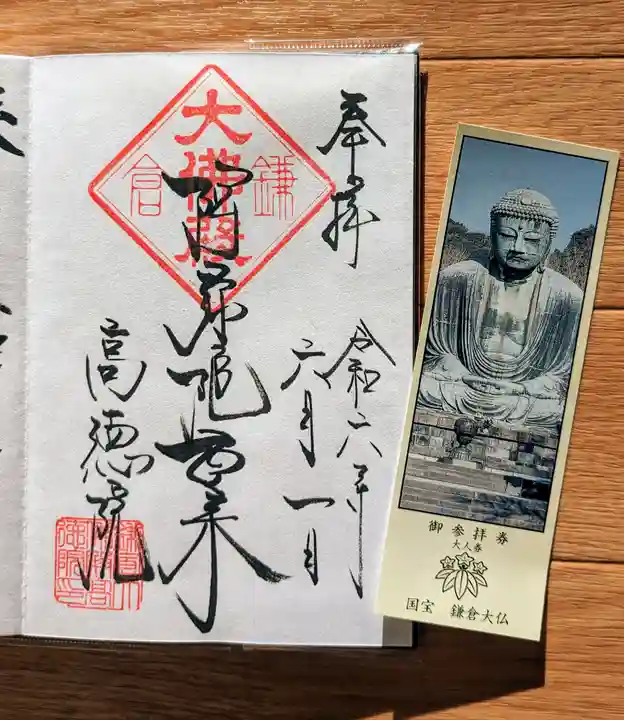 奉拝
令和六年
六月一日
大佛殿
鎌倉
阿弥陀如来
高徳院
御参拝券
大人券
国宝 鎌倉大仏